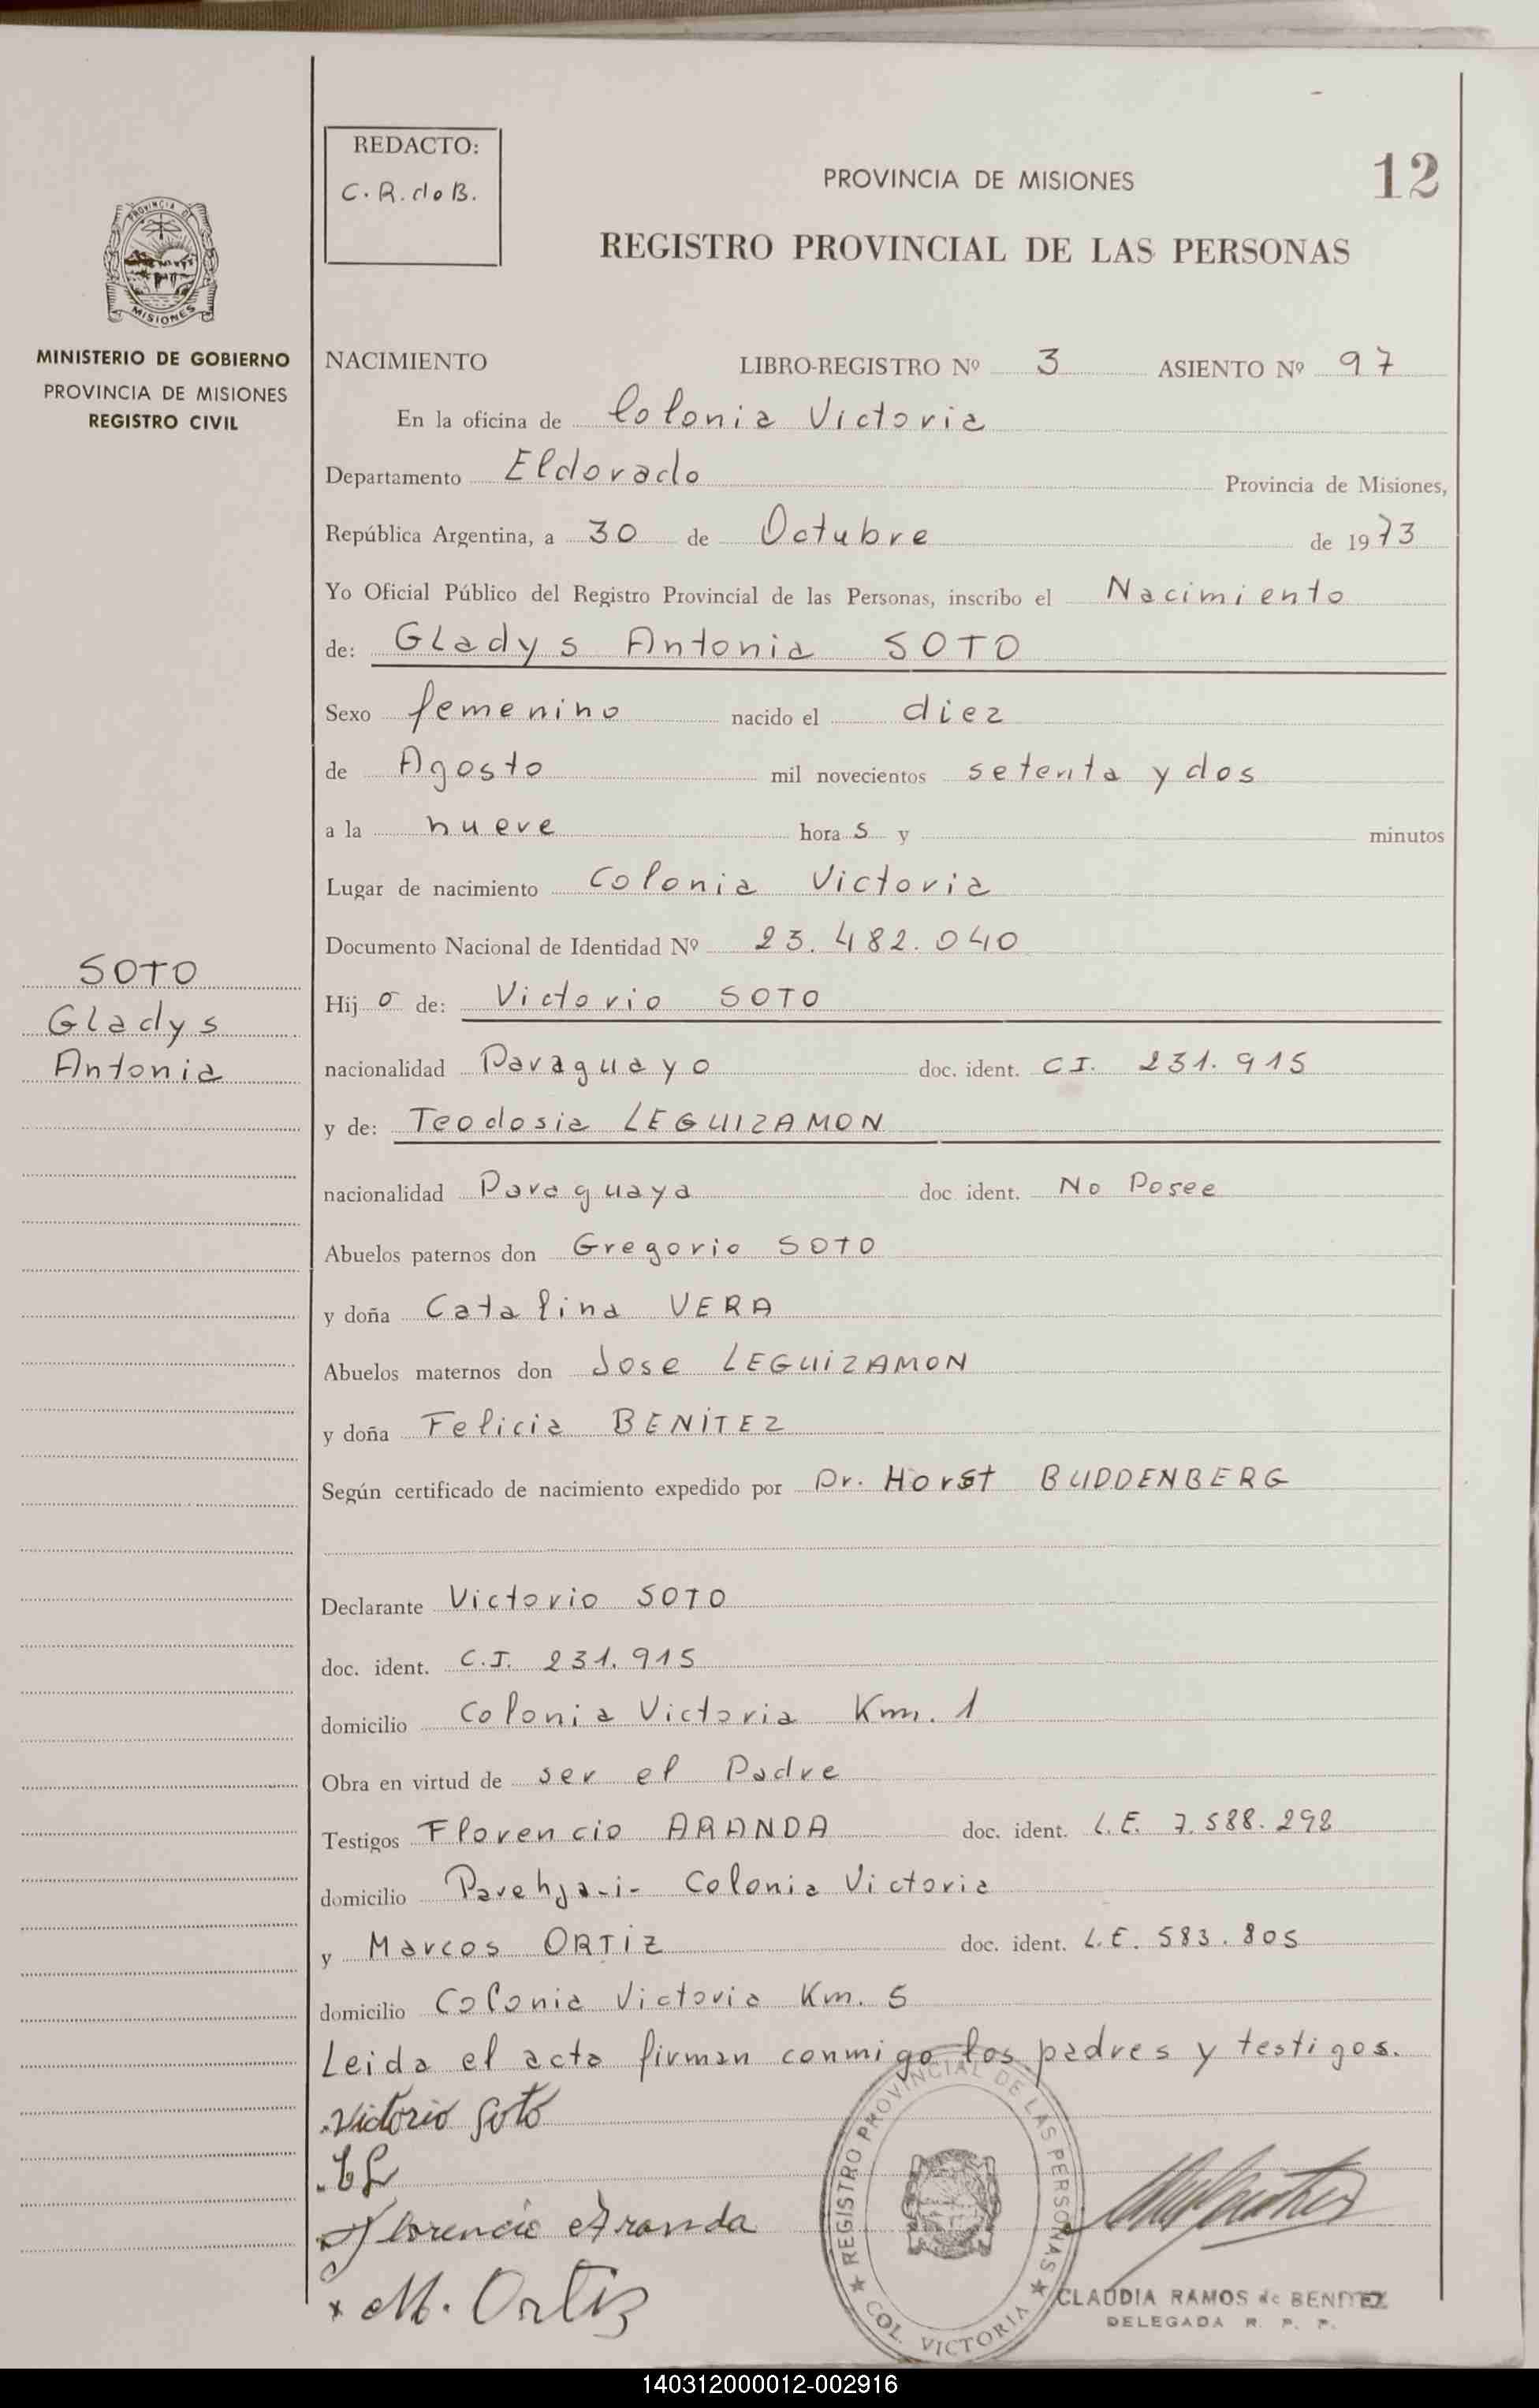 REDACTO:
C.R. de B.
PROVINCIA DE MISIONES
12
REGISTRO PROVINCIAL DE LAS PERSONAS
PROVINCIA DE
MISIONES
MINISTERIO DE GOBIERNO
PROVINCIA DE MISIONES
REGISTRO CIVIL
NACIMIENTO LIBRO-REGISTRO Nº 3 ASIENTO Nº 97
En la oficina de Colonia Victoria
Departamento Eldorado Provincia de Misiones,
República Argentina, a 30 de Octubre de 1973
Yo Oficial Público del Registro Provincial de las Personas, inscribo el Nacimiento
de: Gladys Antonia SOTO
Sexo femenino nacido el diez
de Agosto mil novecientos setenta y dos
a la nueve horas y minutos
Lugar de nacimiento Colonia Victoria
Documento Nacional de Identidad Nº 23.482.040
SOTO
Gladys
Antonia
Hijo de: Victorio SOTO
nacionalidad Paraguayo doc. ident. CI. 231.915
y de: Teodosia LEGUIZAMON
nacionalidad Paraguaya doc ident. No Posee
Abuelos paternos don Gregorio SOTO
y doña Catalina VERA
Abuelos maternos don Jose LEGUIZAMON
y doña Felicia BENÍTEZ
Según certificado de nacimiento expedido por Dr. Horst BUDDENBERG
Declarante Victorio SOTO
doc. ident. C.I. 231.915
domicilio Colonia Victoria Km. 1
Obra en virtud de ser el Padre
Testigos Florencio ARANDA doc. ident. L.E. 7.588.298
domicilio Parehja-i- Colonia Victoria
y Marcos ORTIZ doc. ident. L.E. 583.805
domicilio Colonia Victoria Km. 5
Leida el acta firman conmigo los padres y testigos.
Victorio Soto
Florencio Aranda
x M. Ortiz
REGISTRO PROVINCIAL DE LAS PERSONAS
COL. VICTORIA
CLAUDIA RAMOS de BENITEZ
DELEGADA R. P. P.
140312000012-002916